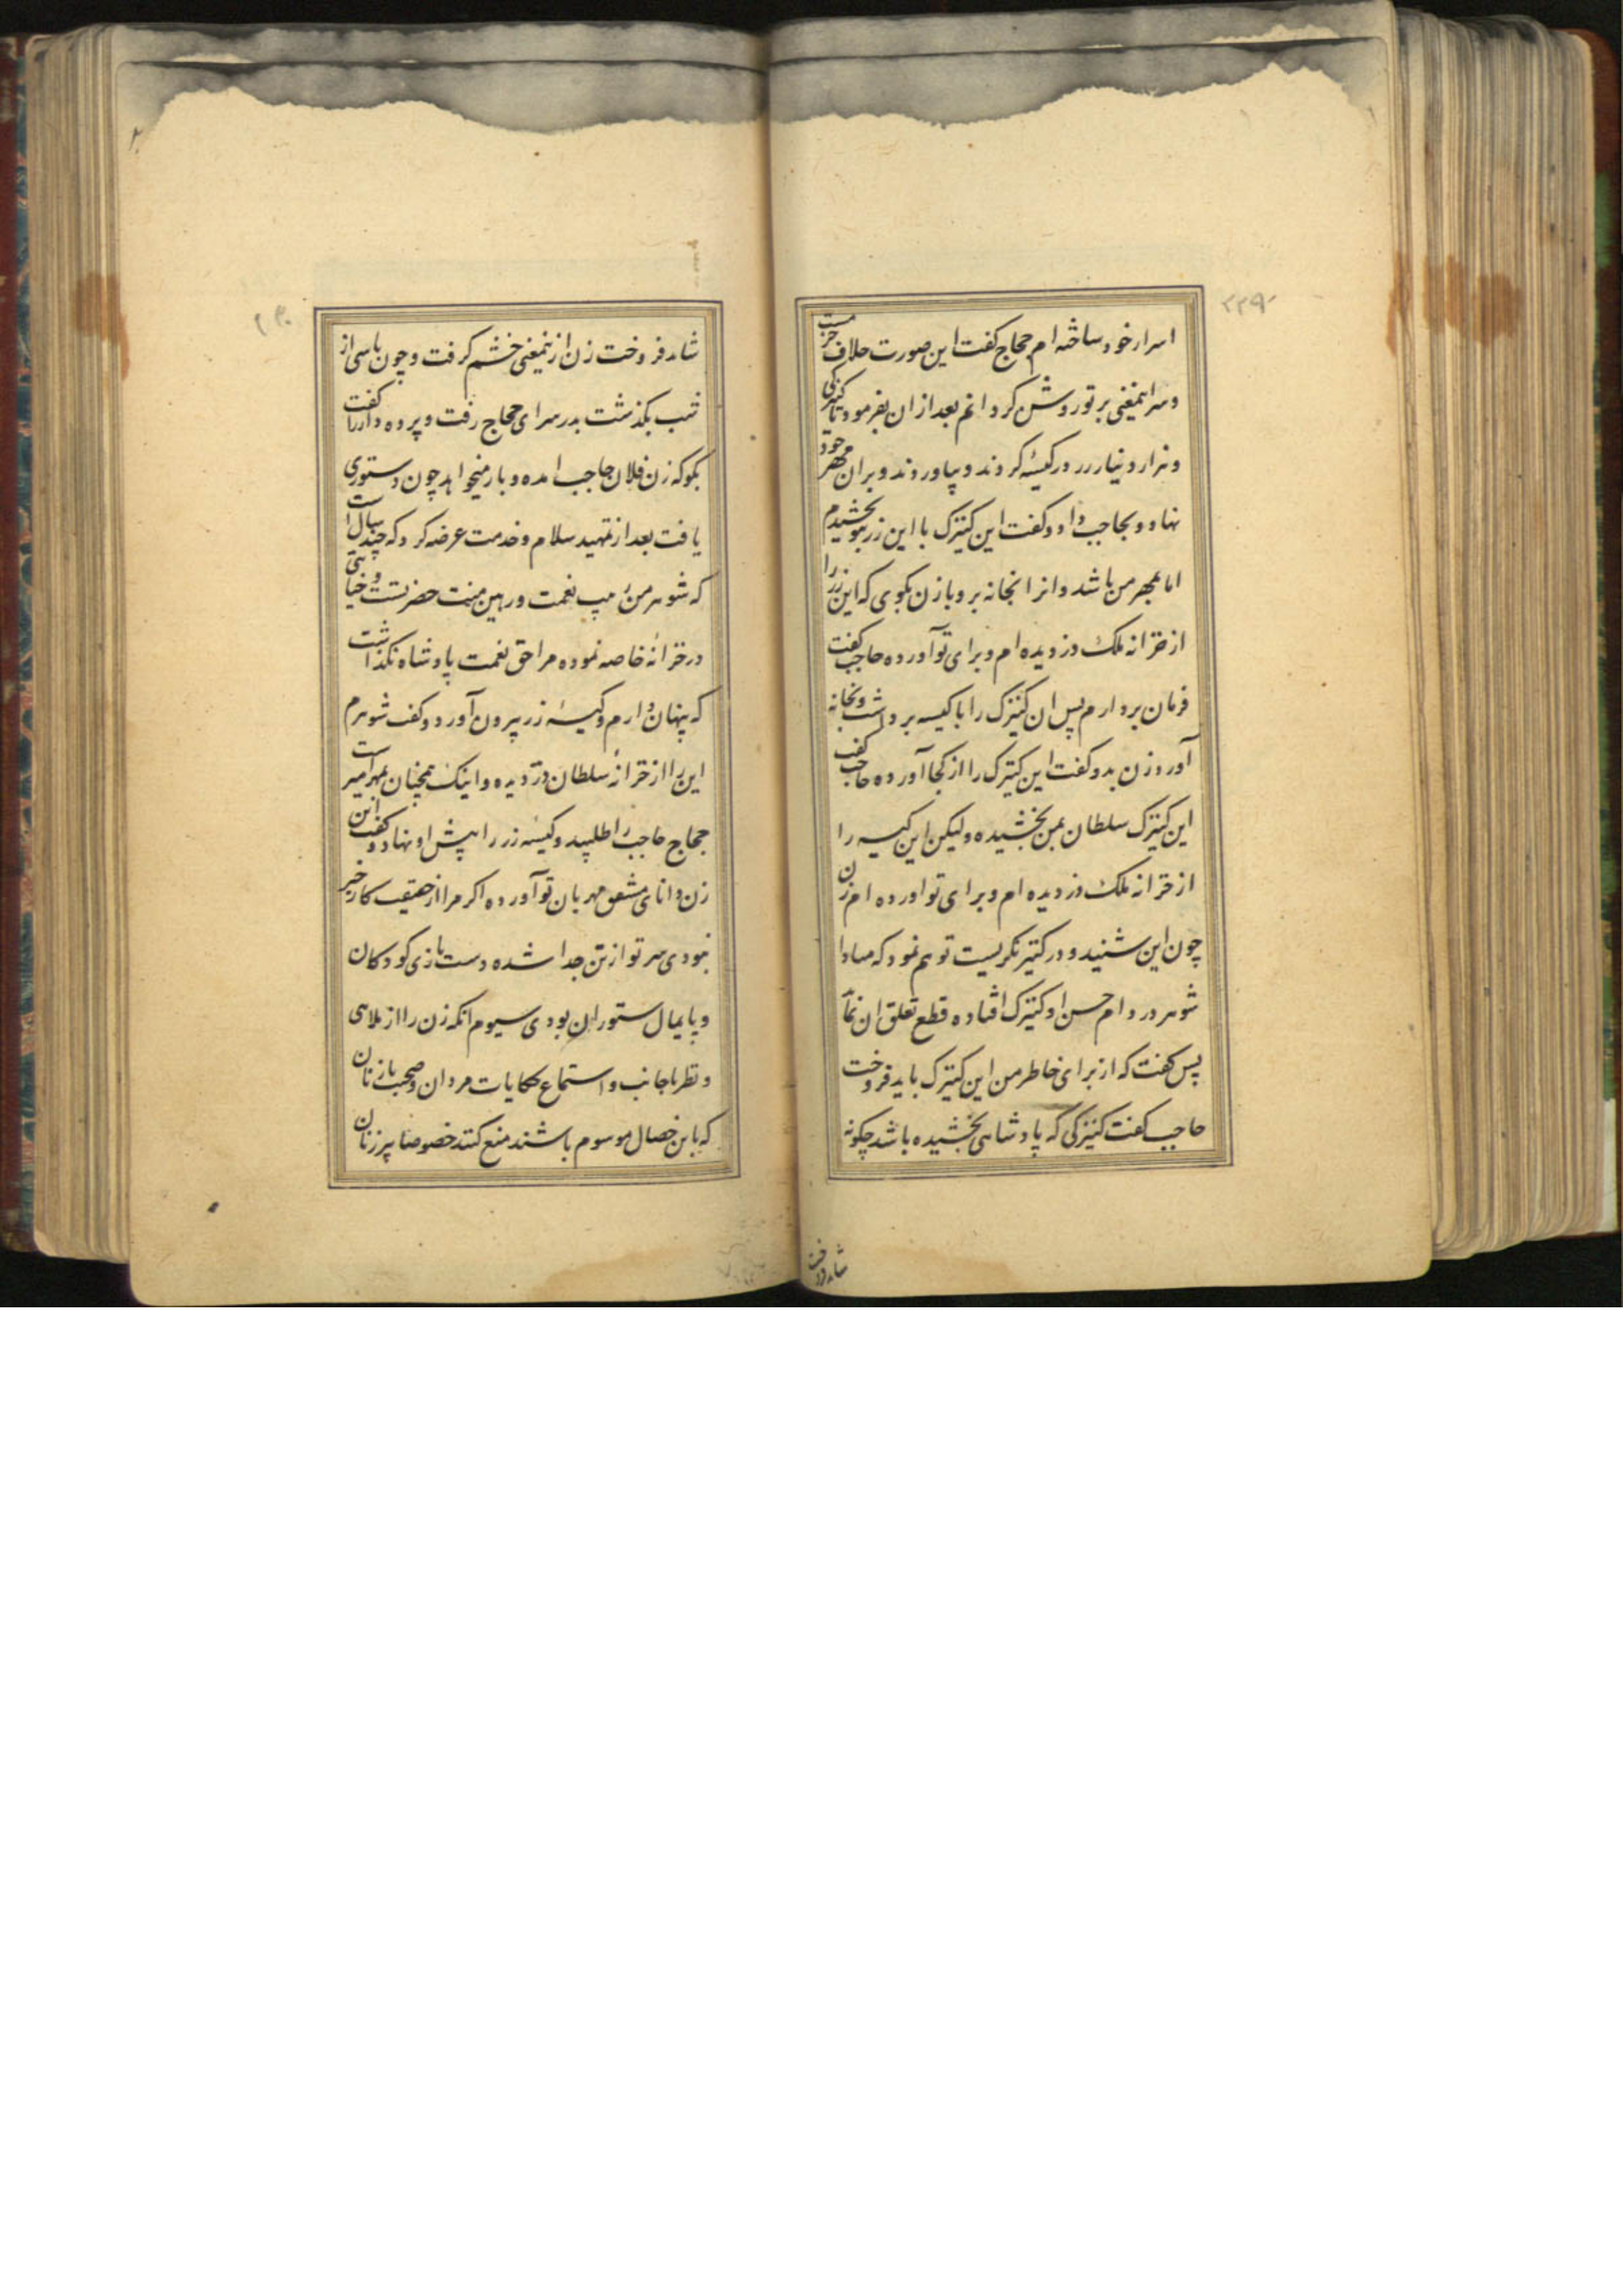 اسرار خود ساخته ام حجاج کفت این صورت خلاف حزمست
و سر اینمعنی بر تو روشن کردانم بعد از ان بفرمود تا کنیزکی
و هزار دینار زر در کیسۀ کردند و بیاوردند و بران مهر خود
نهاد و بحاجب داد و کفت این کنیزک با این زر بتو بخشیدم
اما بمهر من باشد و انرا بخانه بر و با زن بکوی که این زر را
از خزانه ملک دزدیده ام و برای تو آورده حاجب کفت
فرمان بردارم پس ان کنیزک را با کیسه برداشت و بخانه
آورد زن بدو کفت این کنیزک را از کجا آورده حاجب کفت
این کنیزک سلطان بمن بخشیده و لیکن این کیسه را
از خزانه ملک دزدیده ام و برای تو اورده ام زن
چون این شنید و در کنیز نکریست توهم نمود که مبادا
شوهر در دام حسن او کنیزک افتاده قطع تعلق ان نماید
پس کفت که از برای خاطر من این کنیزک باید فروخت
حاجب کفت کنیزکی که پادشاهی بخشیده باشد چکونه
شاید فروخت
۲۲۹
شاید فروخت زن ازینمعنی خشم کرفت و چون پاسی از
شب بکذشت بدر سرای حجاج رفت و پرده دار را کفت
بکو که زن فلان حاجب امده و بار میخواهد چون دستوری
یافت بعد از تمهید سلام و خدمت عرضه کرد که چند سال است
که شوهر من نعمت و رهین منت حضر تست خیانتی
در خزانۀ خاصه نموده مرا حق نعمت پادشاه نکذاشت
که پنهان دارم و کیسۀ زر بیرون آورد و کفت شوهرم
این را از خزانۀ سلطان دزدیده و اینک همچنان بمهر امیر است
حجاج حاجب را طلبید و کیسۀ زر را پیش او نهاد و کفت این
زن دانای مشفق مهربان تو آورده اکر مرا از حقیقت کار خبر
نبودی سر تو از تن جدا شده دست بازی کودکان
و پایمال ستوران بودی سیوم انکه زن را از ملاهی
و نظر باجانب و استماع حکایات مردان و صحبت با زنان
که باین خصال موسوم باشند منع کنند خصوصا پیر زنان